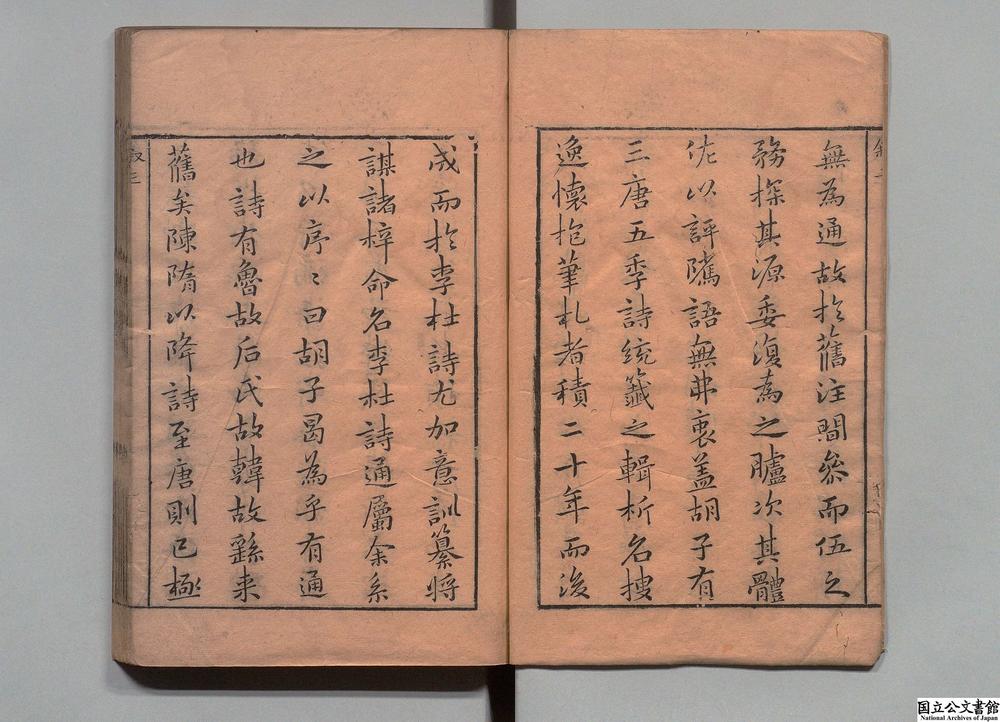 無為通故扵舊注間叅而伍之
務探其源委復為之臚次其體
佐以評隲語無弗衷盖胡子有
三唐五季詩統籖之輯析名搜
逸懷抱筆札者積二十年而後
成而扵李杜詩尤加意訓纂將
謀諸梓命名李杜詩通屬余系
之以序〻曰胡子曷為乎有通
也詩有魯故后氏故韓故繇来
舊矣陳隋以降詩至唐則已極
国立公文書館
National Archives of Japan